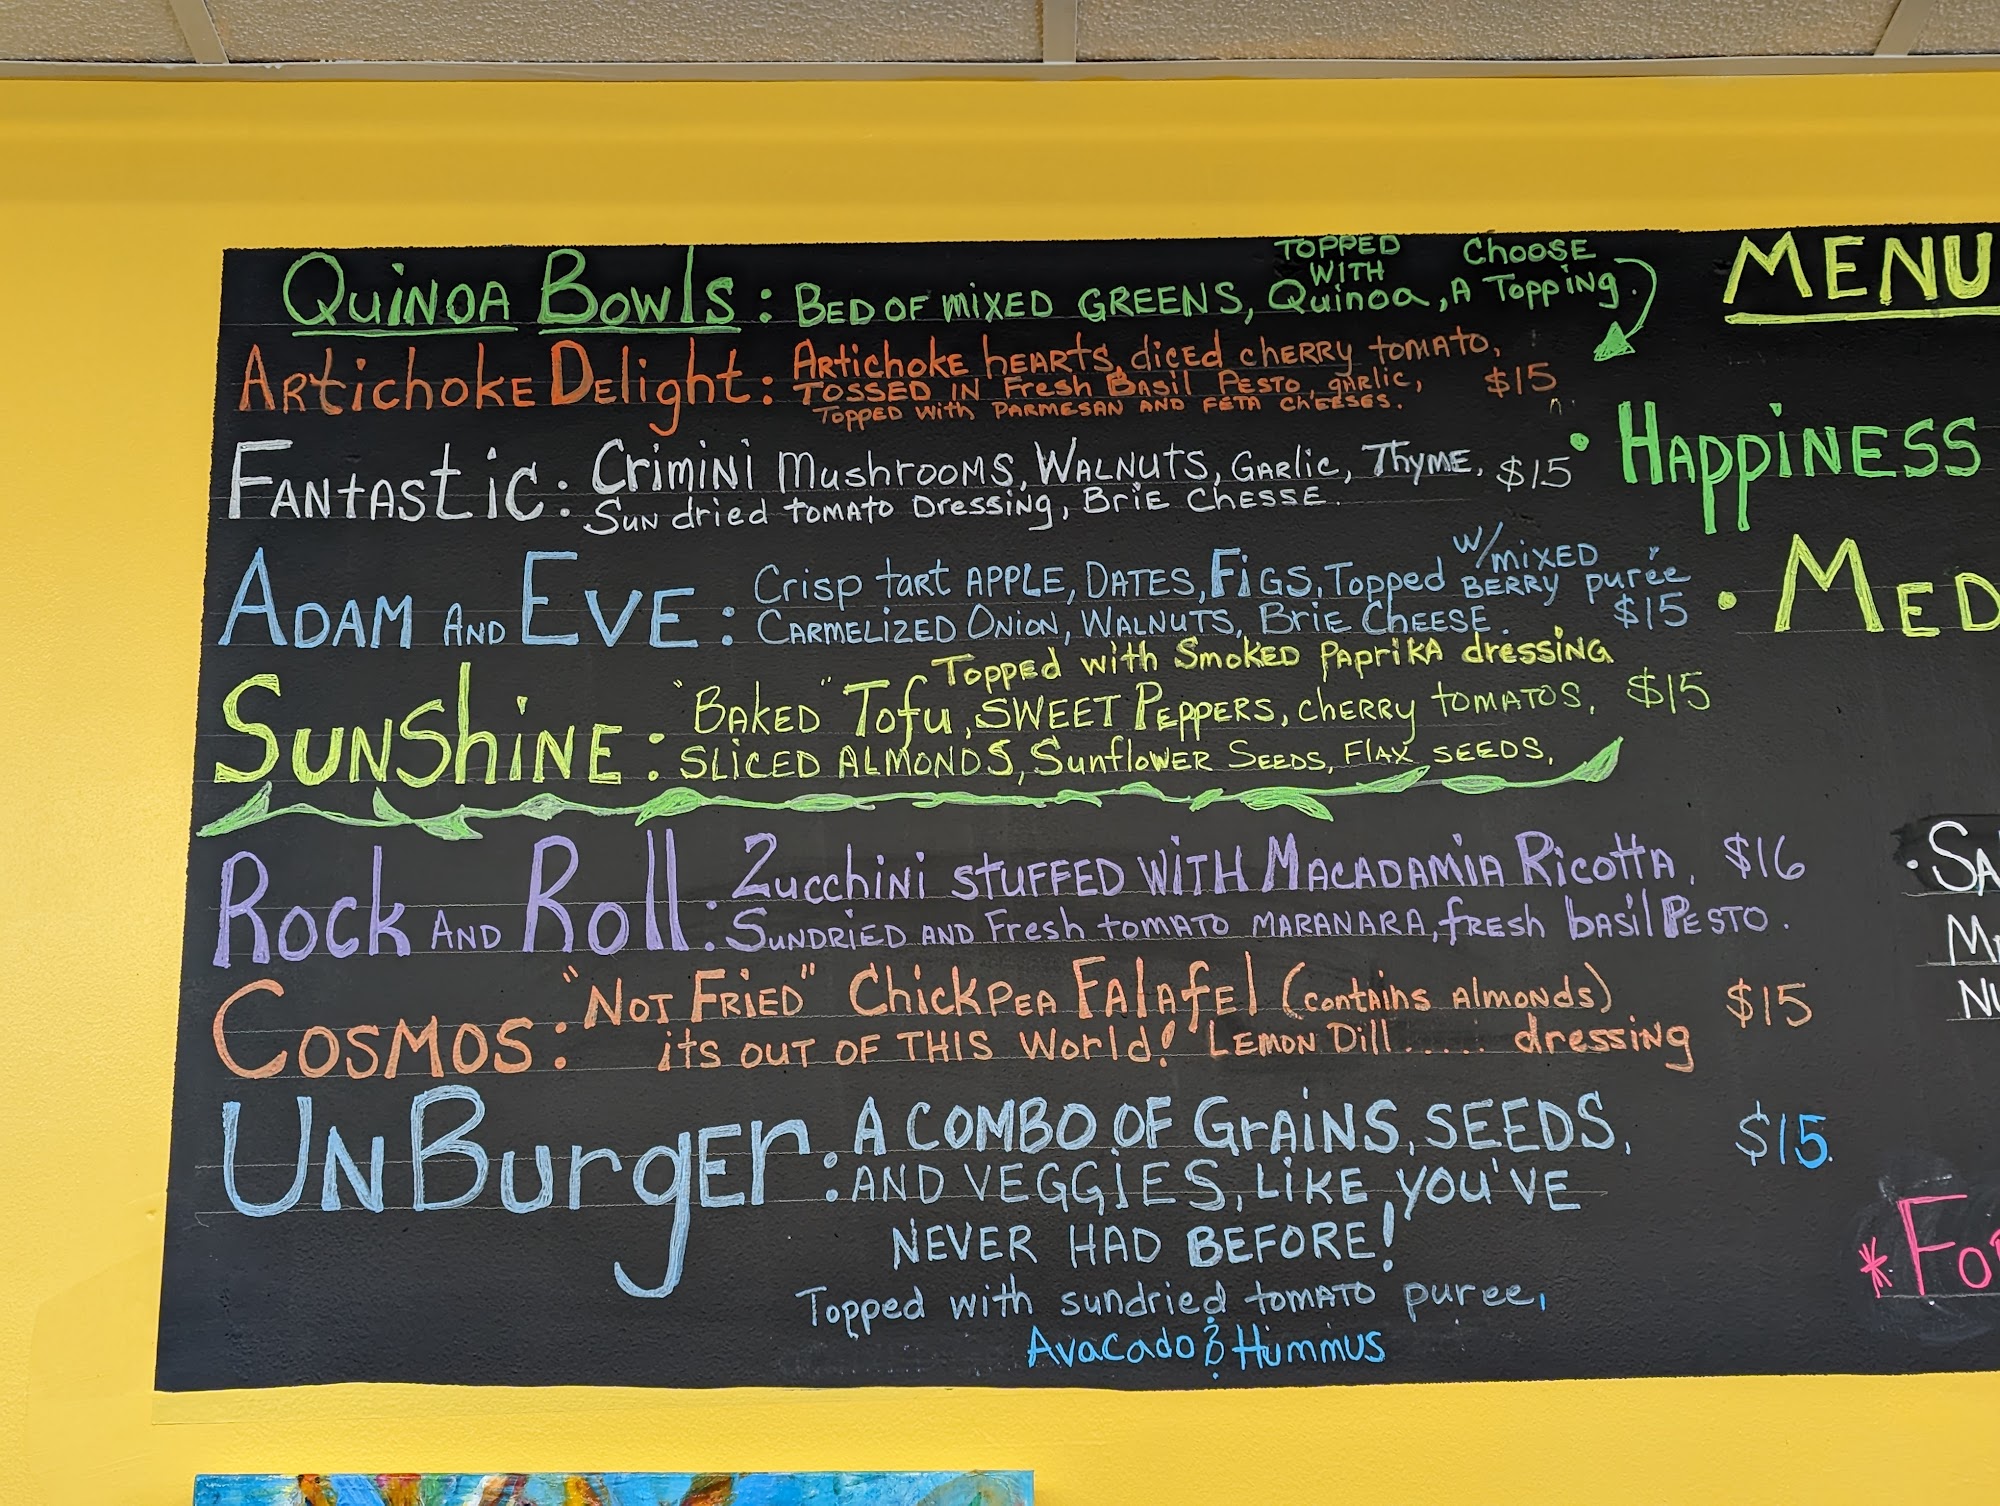 Quinoa Bowls: Bed of mixed greens, topped with Quinoa, Choose A Topping.
Artichoke Delight: Artichoke hearts, diced cherry tomato,
tossed in Fresh Basil Pesto, garlic, $15
Topped with Parmesan and feta cheeses.
Fantastic: Crimini Mushrooms, Walnuts, Garlic, Thyme, $15
Sun dried tomato Dressing, Brie Chesse.
Adam and Eve: Crisp tart apple, Dates, Figs, Topped w/mixed berry purée
Carmelized Onion, Walnuts, Brie Cheese. $15
Topped with Smoked Paprika dressing
Sunshine: "Baked" Tofu, sweet Peppers, cherry tomatos, $15
sliced almonds, Sunflower Seeds, Flax seeds,
Rock and Roll: Zucchini stuffed with Macadamia Ricotta, $16
Sundried and Fresh tomato maranara, fresh basil Pesto.
Cosmos: "Not Fried" Chickpea Falafel (contains almonds) $15
its out of this World! Lemon Dill ..... dressing
UnBurger: A combo of Grains, seeds, $15.
and veggies, like you've
never had before!
Topped with sundried tomato puree,
Avacado & Hummus
MENU
• Happiness
• Med
• Sa
M
Nu
* For